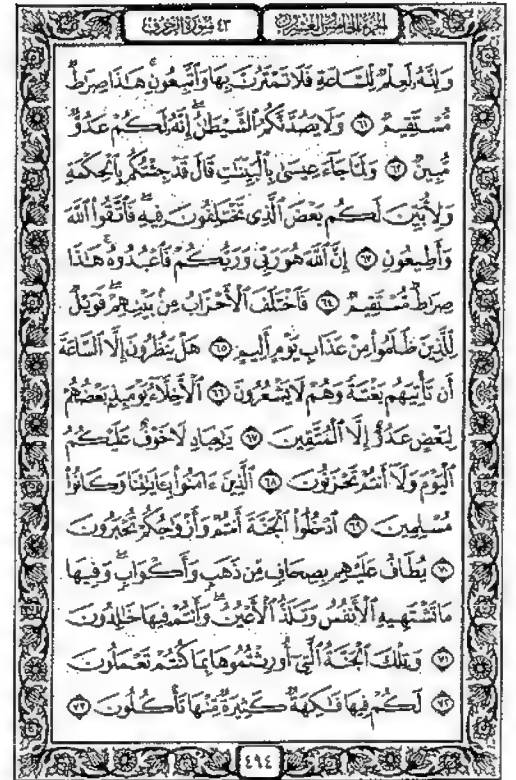 الجزء الخامس والعشرون
٤٣ سورة الزخرف
وَإِنَّهُۥ لَعِلْمٌ لِّلسَّاعَةِ فَلَا تَمْتَرُنَّ بِهَا وَٱتَّبِعُونِ ۚ هَـٰذَا صِرَٰطٌ
مُّسْتَقِيمٌ ٦١ وَلَا يَصُدَّنَّكُمُ ٱلشَّيْطَـٰنُ ۖ إِنَّهُۥ لَكُمْ عَدُوٌّ
مُّبِينٌ ٦٢ وَلَمَّا جَآءَ عِيسَىٰ بِٱلْبَيِّنَـٰتِ قَالَ قَدْ جِئْتُكُم بِٱلْحِكْمَةِ
وَلِأُبَيِّنَ لَكُم بَعْضَ ٱلَّذِى تَخْتَلِفُونَ فِيهِ ۖ فَٱتَّقُوا۟ ٱللَّهَ
وَأَطِيعُونِ ٦٣ إِنَّ ٱللَّهَ هُوَ رَبِّى وَرَبُّكُمْ فَٱعْبُدُوهُ ۚ هَـٰذَا
صِرَٰطٌ مُّسْتَقِيمٌ ٦٤ فَٱخْتَلَفَ ٱلْأَحْزَابُ مِنۢ بَيْنِهِمْ ۖ فَوَيْلٌ
لِّلَّذِينَ ظَلَمُوا۟ مِنْ عَذَابِ يَوْمٍ أَلِيمٍ ٦٥ هَلْ يَنظُرُونَ إِلَّا ٱلسَّاعَةَ
أَن تَأْتِيَهُم بَغْتَةً وَهُمْ لَا يَشْعُرُونَ ٦٦ ٱلْأَخِلَّآءُ يَوْمَئِذٍۭ بَعْضُهُمْ
لِبَعْضٍ عَدُوٌّ إِلَّا ٱلْمُتَّقِينَ ٦٧ يَـٰعِبَادِ لَا خَوْفٌ عَلَيْكُمُ
ٱلْيَوْمَ وَلَآ أَنتُمْ تَحْزَنُونَ ٦٨ ٱلَّذِينَ ءَامَنُوا۟ بِـَٔايَـٰتِنَا وَكَانُوا۟
مُسْلِمِينَ ٦٩ ٱدْخُلُوا۟ ٱلْجَنَّةَ أَنتُمْ وَأَزْوَٰجُكُمْ تُحْبَرُونَ
٧٠ يُطَافُ عَلَيْهِم بِصِحَافٍ مِّن ذَهَبٍ وَأَكْوَابٍ ۖ وَفِيهَا
مَا تَشْتَهِيهِ ٱلْأَنفُسُ وَتَلَذُّ ٱلْأَعْيُنُ ۖ وَأَنتُمْ فِيهَا خَـٰلِدُونَ
٧١ وَتِلْكَ ٱلْجَنَّةُ ٱلَّتِىٓ أُورِثْتُمُوهَا بِمَا كُنتُمْ تَعْمَلُونَ
٧٢ لَكُمْ فِيهَا فَـٰكِهَةٌ كَثِيرَةٌ مِّنْهَا تَأْكُلُونَ ٧٣
٤٩٤